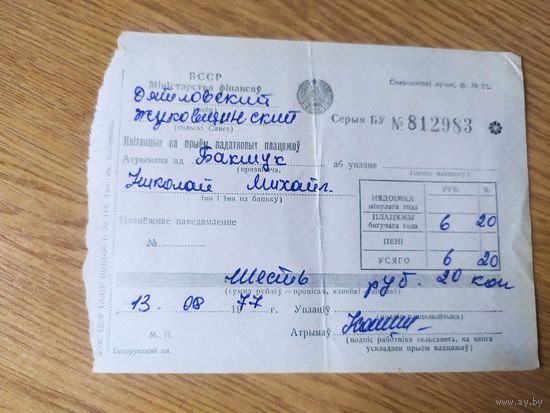 БССР
Міністэрства фінансаў
Сельсавецкі пункт, ф. №
Дятловский
(раён)
Жуковщинский
(сельскі Савет)
Серыя БУ № 812983
Квітанцыя на прыём падатковых плацяжоў
Атрымана ад Бакшук аб уплаце
(прозвішча, (назва плацяжу)
Николай Михайл.
імя і імя па бацьку)
РУБ. К.
НЯДОІМКА мінулага года
ПЛАЦЯЖЫ бягучага года 6 20
ПЕНІ
УСЯГО 6 20
Плацёжнае паведамленне
№
Шесть руб. 20 коп
(сума рублёў — прописам, капейкі —
13 08 1977 г. Уплаціў
(подпіс плацельшчыка)
М. П. Атрымаў
(подпіс работніка сельсавета, на якога ускладзен прыём плацяжоў)
Беларускай ав.
www.ay.by